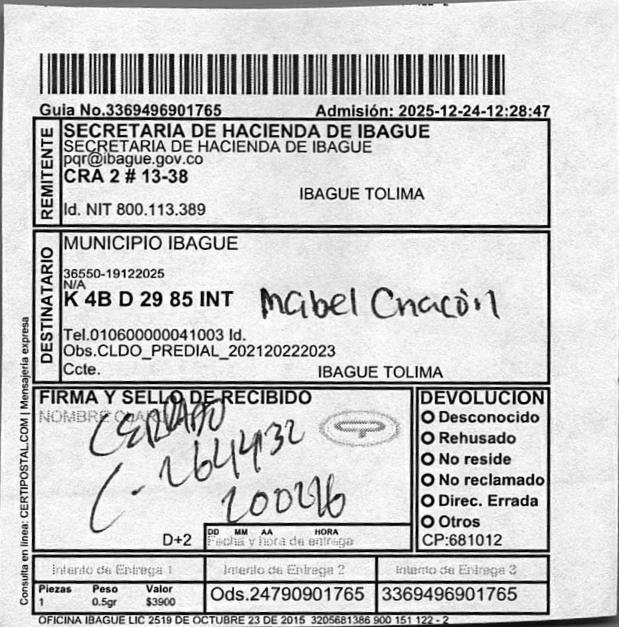 Guia No.3369496901765 Admisión: 2025-12-24-12:28:47
REMITENTE
SECRETARIA DE HACIENDA DE IBAGUE
SECRETARIA DE HACIENDA DE IBAGUE
pqr@ibague.gov.co
CRA 2 # 13-38
IBAGUE TOLIMA
Id. NIT 800.113.389
DESTINATARIO
MUNICIPIO IBAGUE
36550-19122025
N/A
K 4B D 29 85 INT
Mabel Chacón
Tel.010600000041003 Id.
Obs.CLDO_PREDIAL_202120222023
Ccte. IBAGUE TOLIMA
FIRMA Y SELLO DE RECIBIDO
NOMBRE
CERRADO
C-264432
200226
D+2
DD MM AA HORA
Fecha y hora de entrega
DEVOLUCION
Desconocido
Rehusado
No reside
No reclamado
Direc. Errada
Otros
CP:681012
Intento de Entrega 1 Intento de Entrega 2 Intento de Entrega 3
Piezas Peso Valor
1 0.5gr $3900
Ods.24790901765 3369496901765
OFICINA IBAGUE LIC 2519 DE OCTUBRE 23 DE 2015 3205681386 900 151 122 - 2
Consulta en linea: CERTIPOSTAL.COM | Mensajería expresa